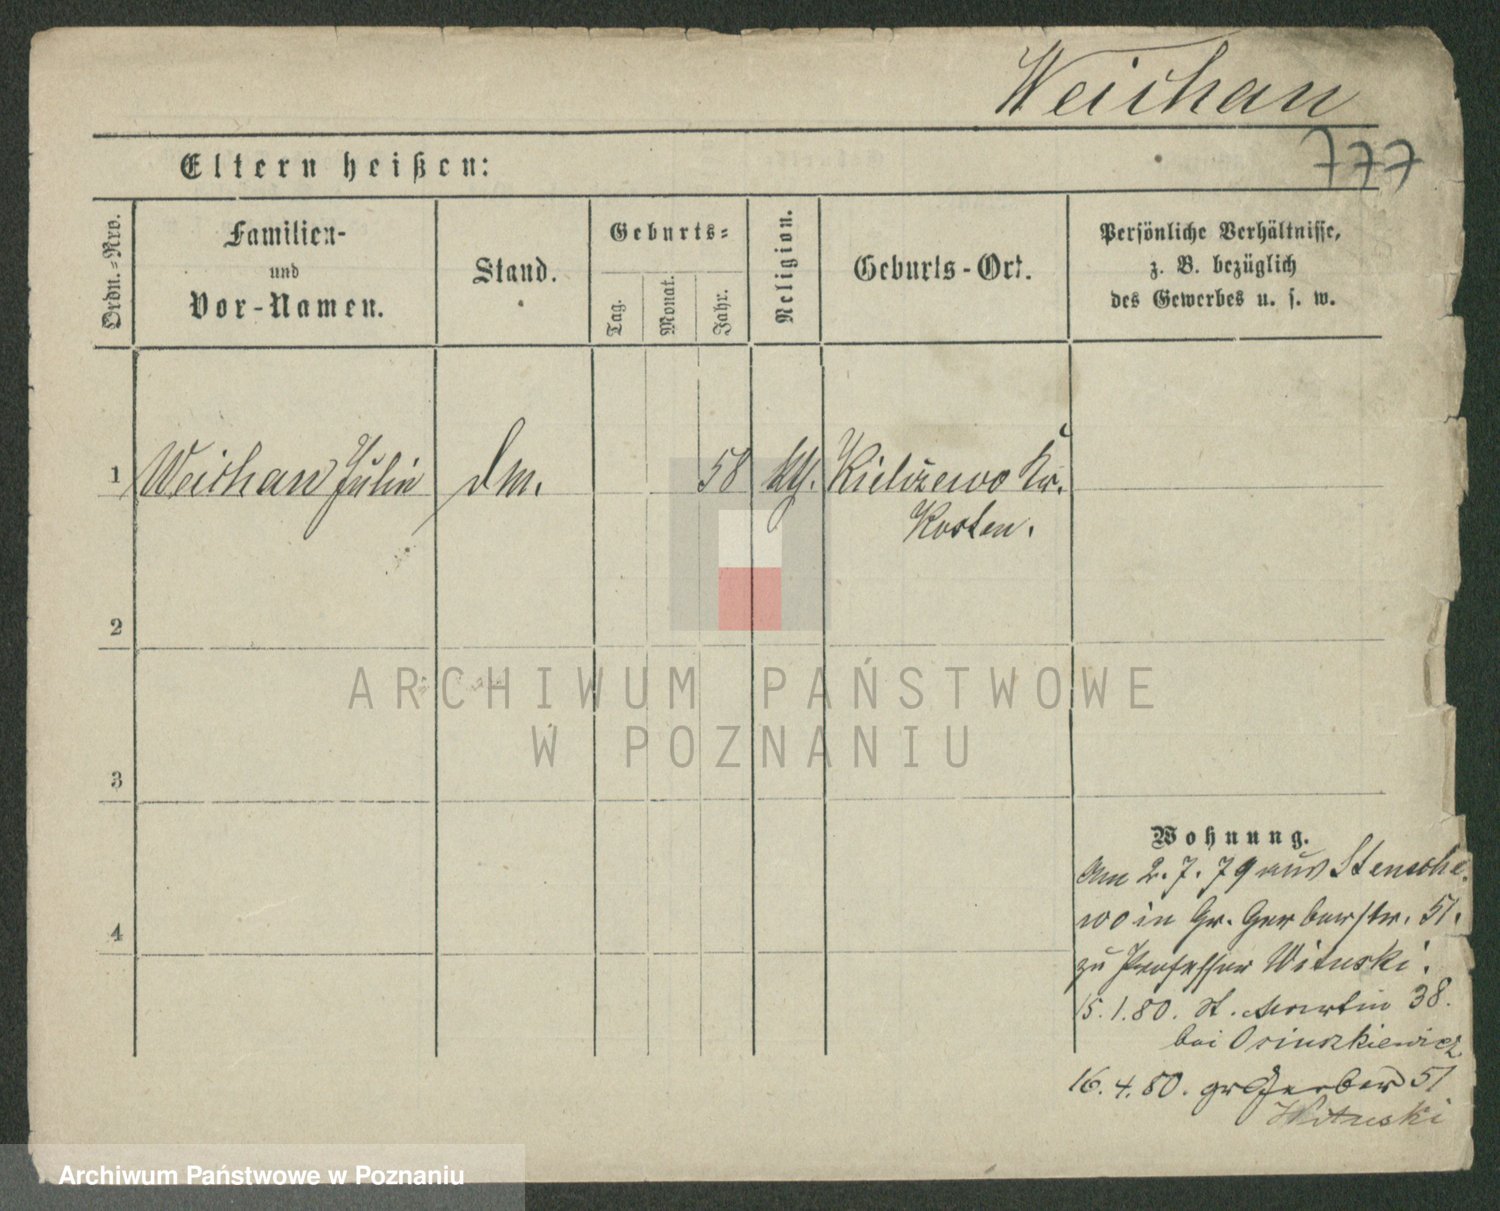 Weichan
777
Eltern heißen:
Ordn.-Nro.
Familien-
und
Vor-Namen.
Stand.
Geburts-
Tag.
Monat.
Jahr.
Religion.
Geburts-Ort.
Persönliche Verhältnisse,
z. B. bezüglich
des Gewerbes u. s. w.
1 Weichan Julie Dm. 58 kth. Kielczewo Kr.
Kosten.
2
ARCHIWUM PAŃSTWOWE
W POZNANIU
3
Wohnung.
Am 2. 7. 79 aus Stensche-
wo in Gr. Gerberstr. 51.
4
zu Professor Wituski.
15. 1. 80. St. Martin 38.
bei Osinszkiewicz
16. 4. 80. gr Gerber 51
Wituski
Archiwum Państwowe w Poznaniu